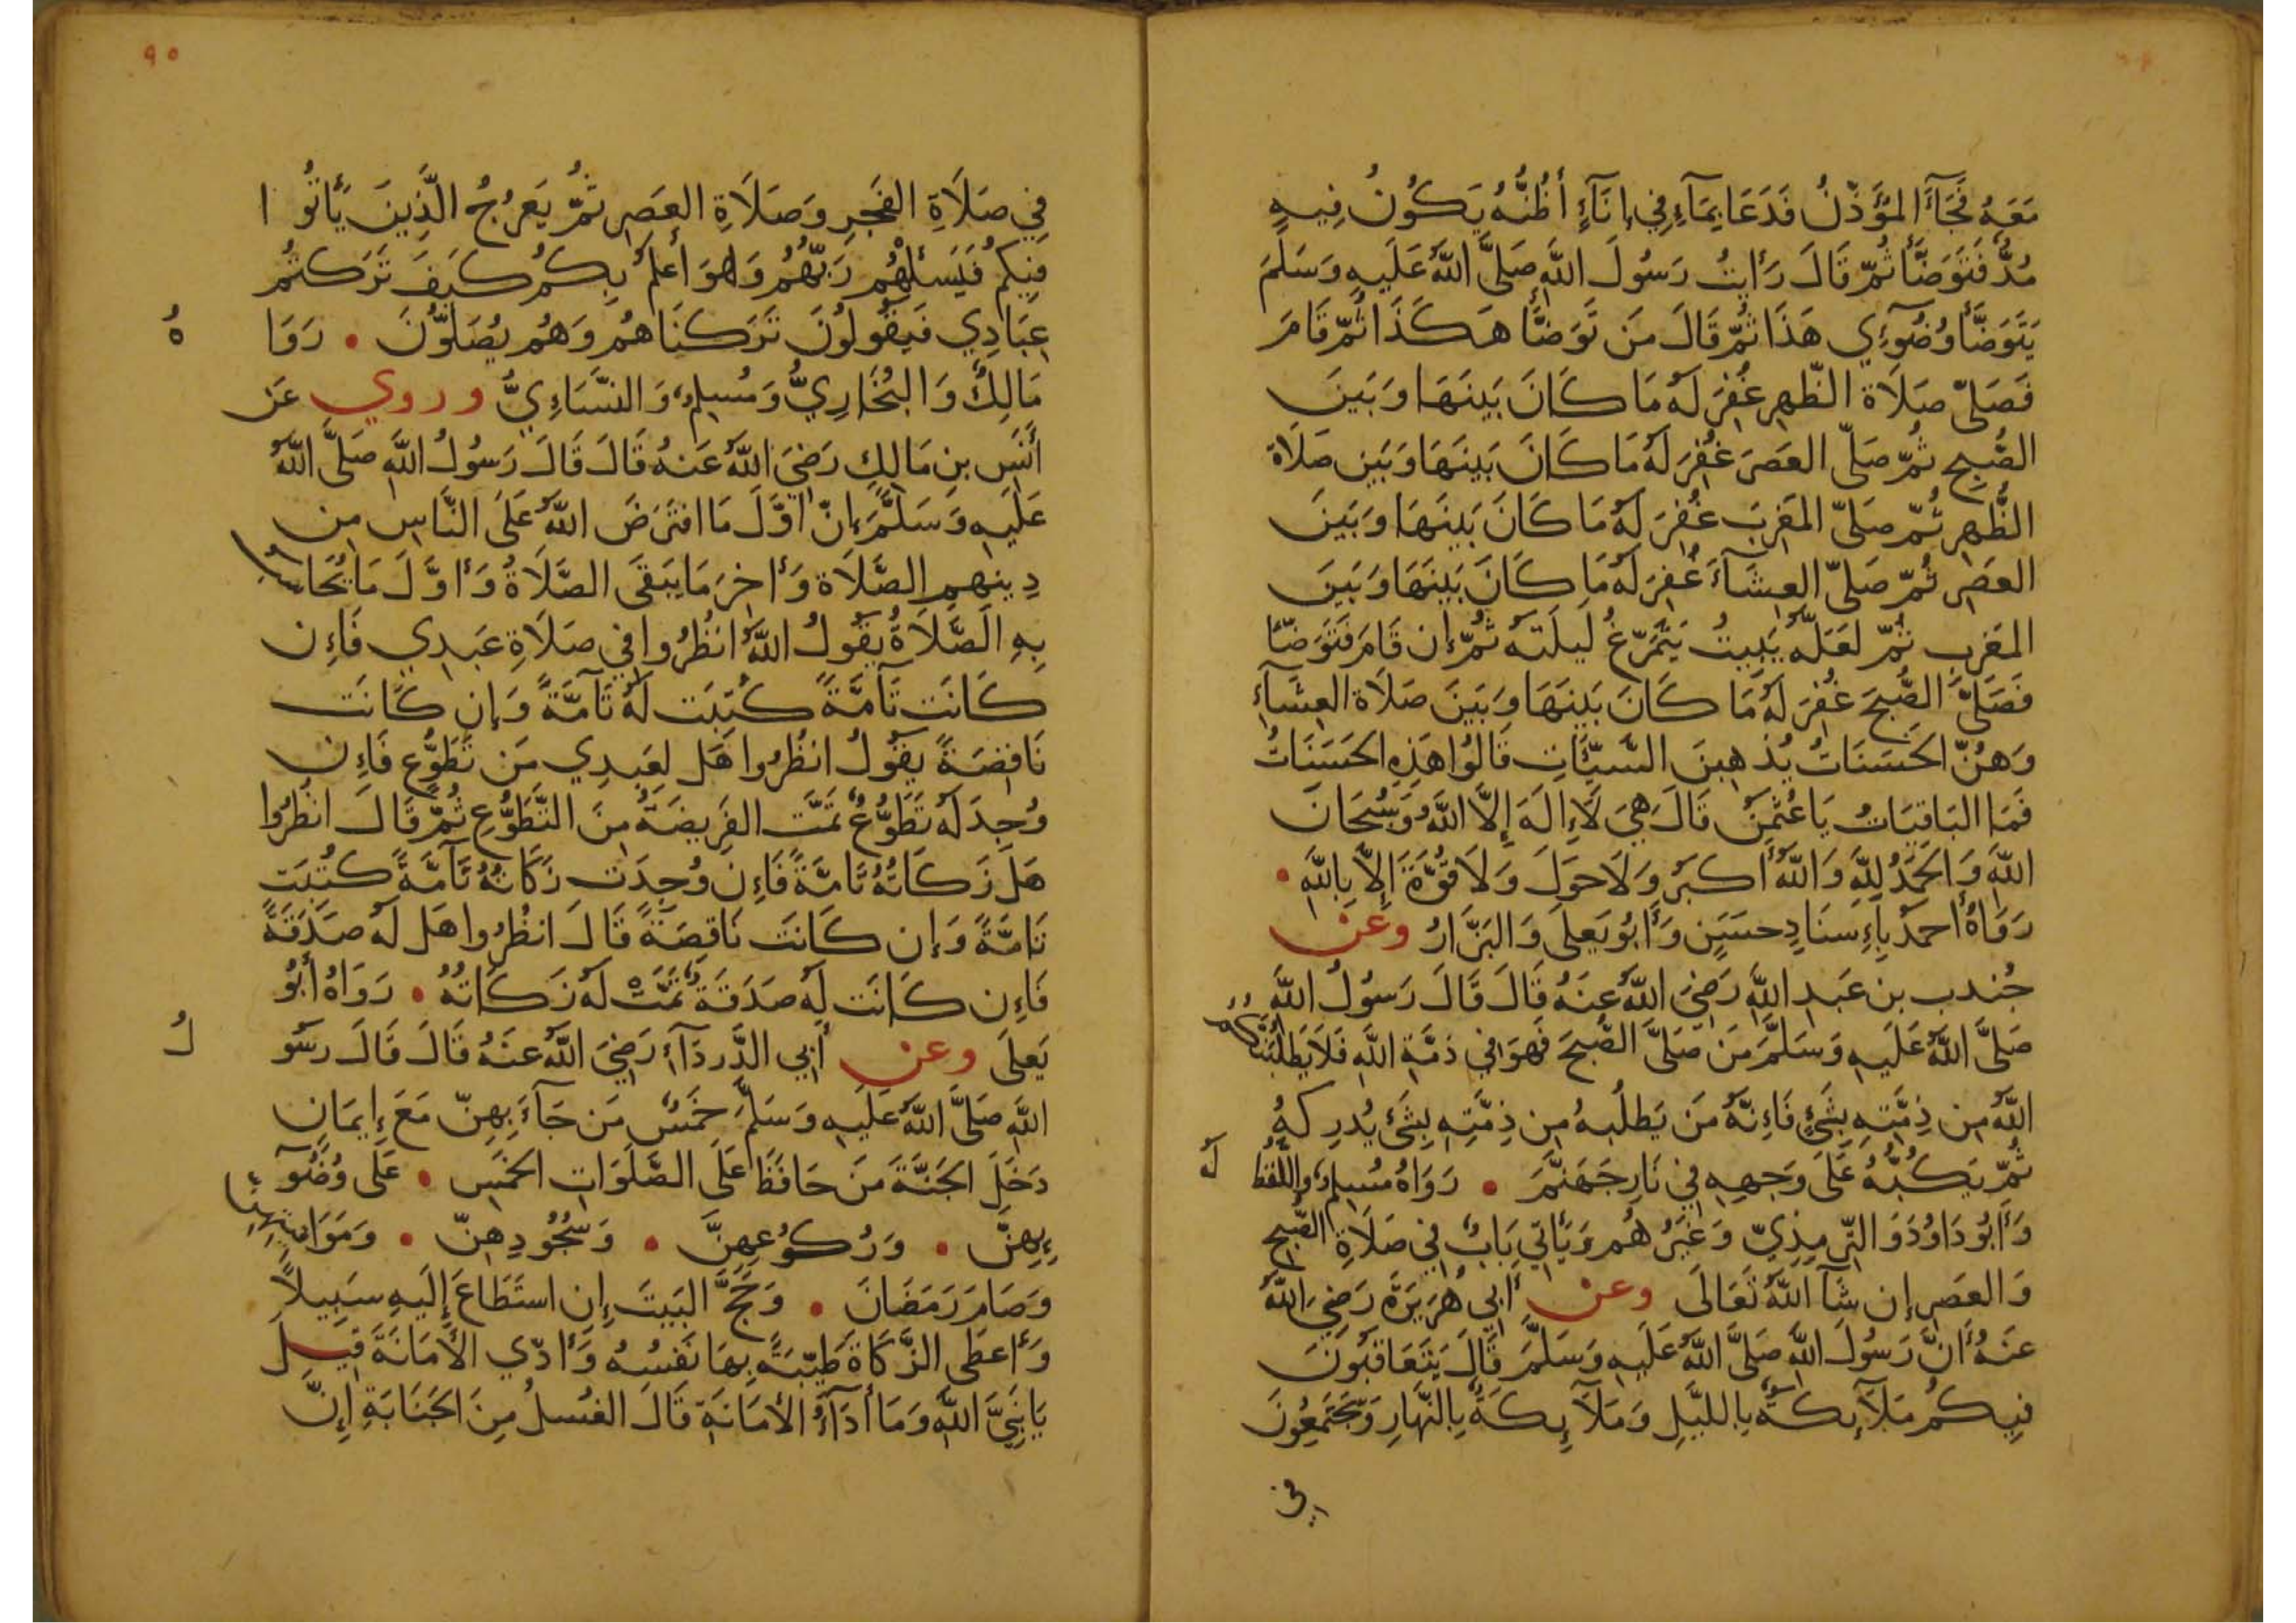 مَعَهُ فَجَآءَ المُؤَذِّنُ فَدَعَا بِمَآءٍ فِي إِنَآءٍ أَظُنُّهُ يَكُونُ فِيهِ
مُدٌّ فَتَوَضَّأَ ثُمَّ قَالَ رَأَيتُ رَسُولَ اللَّهِ صَلَّى اللَّهُ عَلَيهِ وَسَلَّمَ
يَتَوَضَّأُ وُضُوٓءِي هَذَا ثُمَّ قَالَ مَن تَوَضَّأَ هَكَذَا ثُمَّ قَامَ
فَصَلَّى صَلَاةَ الظُّهرِ غُفِرَ لَهُ مَا كَانَ بَينَهَا وَبَينَ
الصُّبحِ ثُمَّ صَلَّى العَصرَ غُفِرَ لَهُ مَا كَانَ بَينَهَا وَبَينَ صَلَاةِ
الظُّهرِ ثُمَّ صَلَّى المَغرِبَ غُفِرَ لَهُ مَا كَانَ بَينَهَا وَبَينَ
العَصرِ ثُمَّ صَلَّى العِشَآءَ غُفِرَ لَهُ مَا كَانَ بَينَهَا وَبَينَ
المَغرِبِ ثُمَّ لَعَلَّهُ يَبِيتُ يَتَمَرَّغُ لَيلَتَهُ ثُمَّ إِن قَامَ فَتَوَضَّأَ
فَصَلَّى الصُّبحَ غُفِرَ لَهُ مَا كَانَ بَينَهَا وَبَينَ صَلَاةِ العِشَآءِ
وَهُنَّ الحَسَنَاتُ يُذهِبنَ السَّيِّئَاتِ قَالُوا هَذِهِ الحَسَنَاتُ
فَمَا البَاقِيَاتُ يَا عُثمَنُ قَالَ هِيَ لَا إِلَهَ إِلَّا اللَّهُ وَسُبحَانَ
اللَّهِ وَالحَمدُ لِلَّهِ وَاللَّهُ أَكبَرُ وَلَا حَولَ وَلَا قُوَّةَ إِلَّا بِاللَّهِ •
رَوَاهُ أَحمَدُ بِإِسنَادٍ حَسَنٍ وَأَبُو يَعلَى وَالبَزَّارُ وعن
جُندبِ بنِ عَبدِ اللَّهِ رَضِيَ اللَّهُ عَنهُ قَالَ قَالَ رَسُولُ اللَّهِ
صَلَّى اللَّهُ عَلَيهِ وَسَلَّمَ مَن صَلَّى الصُّبحَ فَهوَ فِي ذِمَّةِ اللَّهِ فَلَا يَطلُبَنَّكُم
اللَّهُ مِن ذِمَّتِهِ بِشَيءٍ فَإِنَّهُ مَن يَطلُبهُ مِن ذِمَّتِهِ بِشَيءٍ يُدرِكهُ
ثُمَّ يَكُبُّهُ عَلَى وَجهِهِ فِي نَارِ جَهَنَّمَ • رَوَاهُ مُسلِمٌ وَاللَّفظُ لَهُ
وَأَبُو دَاوُدَ وَالتِّرمِذِيّ وَغَيرُهُم وَيَأتِي بَابٌ فِي صَلَاةِ الصُّبحِ
وَالعَصرِ إِن شَآ اللَّهُ تَعَالَى وعن أَبِي هُرَيرَةَ رَضِيَ اللَّهُ
عَنهُ أَنَّ رَسُولَ اللَّهِ صَلَّى اللَّهُ عَلَيهِ وَسَلَّمَ قَالَ يَتَعَاقَبُونَ
فِيكُم مَلَآئِكَةٌ بِاللَّيلِ وَمَلَآئِكَةٌ بِالنَّهَارِ وَيَجتَمِعُونَ
في
٩٥
فِي صَلَاةِ الفَجرِ وَصَلَاةِ العَصرِ ثُمَّ يَعرُجُ الَّذِينَ يَأتُوا
فِيكُم فَيَسئَلُهُم رَبُّهُم وَهوَ أَعلَمُ بِكُم كَيفَ تَرَكتُم
عِبَادِي فَيَقُولُونَ تَرَكنَاهُم وَهُم يُصَلُّونَ • رَوَا هُ
مَالِكٌ وَالبُخَارِيُّ وَمُسلِمٌ وَالنَّسَاءِيُّ وروي عَن
أَنَسِ بنِ مَالِكٍ رَضِيَ اللَّهُ عَنهُ قَالَ قَالَ رَسُولُ اللَّهِ صَلَّى اللَّهُ
عَلَيهِ وَسَلَّمَ إِنَّ أَوَّلَ مَا افتَرَضَ اللَّهُ عَلَى النَّاسِ مِن
دِينِهِمِ الصَّلَاةَ وَأَاخِرَ مَا يَبقَى الصَّلَاةُ وَأَوَّلَ مَا يُحَاسَبُ
بِهِ الصَّلَاةُ يَقُولُ اللَّهُ انظُرُوا فِي صَلَاةِ عَبدِي فَإِن
كَانَت تَآمَّةً كُتِبَت لَهُ تَآمَّةً وَإِن كَانَت
نَاقِصَةً يَقُولُ انظُرُوا هَل لِعَبدِي مَن تَطَوُّعٍ فَإِن
وُجِدَ لَهُ تَطَوُّعٌ تَمَّت الفَرِيضَةُ مِنَ التَّطَوُّعِ ثُمَّ قَالَ انظُرُوا
هَل زَكَاتُهُ تَامَّةً فَإِن وُجِدَت زَكَاتُهُ تَآمَّةً كُتِبَت
تَامَّةً وَإِن كَانَت نَاقِصَةً قَالَ انظُرُوا هَل لَهُ صَدَقَةً
فَإِن كَانَت لَهُ صَدَقَةٌ تَمَّتْ لَهُ زَكَاتُهُ • رَوَاهُ أَبُو
يَعلَى وعن أَبِي الدَّردَآءِ رَضِيَ اللَّهُ عَنهُ قَالَ قَالَ رَسُو لُ
اللَّهِ صَلَّى اللَّهُ عَلَيهِ وَسَلَّمَ خَمسٌ مَن جَآءَ بِهِنَّ مَعَ إِيمَانٍ
دَخَلَ الجَنَّةَ مَن حَافَظَ عَلَى الصَّلَوَاتِ الخَمسِ • عَلَى وُضُوٓ
ءِهِنَّ • وَرُكُوعِهِنَّ • وَسُجُودِهِنَّ • وَمَوَاقِيتِهِنَّ
وَصَامَ رَمَضَانَ • وَحَجَّ البَيتَ إِنِ استَطَاعَ إِلَيهِ سَبِيلًا
وَأَعطَى الزَّكَاةَ طَيِّبَةً بِهَا نَفسُهُ وَأَدّي الأَمَانَةَ قِيلَ
يَا نَبِيَّ اللَّهِ وَمَا أَدَآءُ الأَمَانَةِ قَالَ الغُسلُ مِنَ الجَنَابَةِ إِنَّ